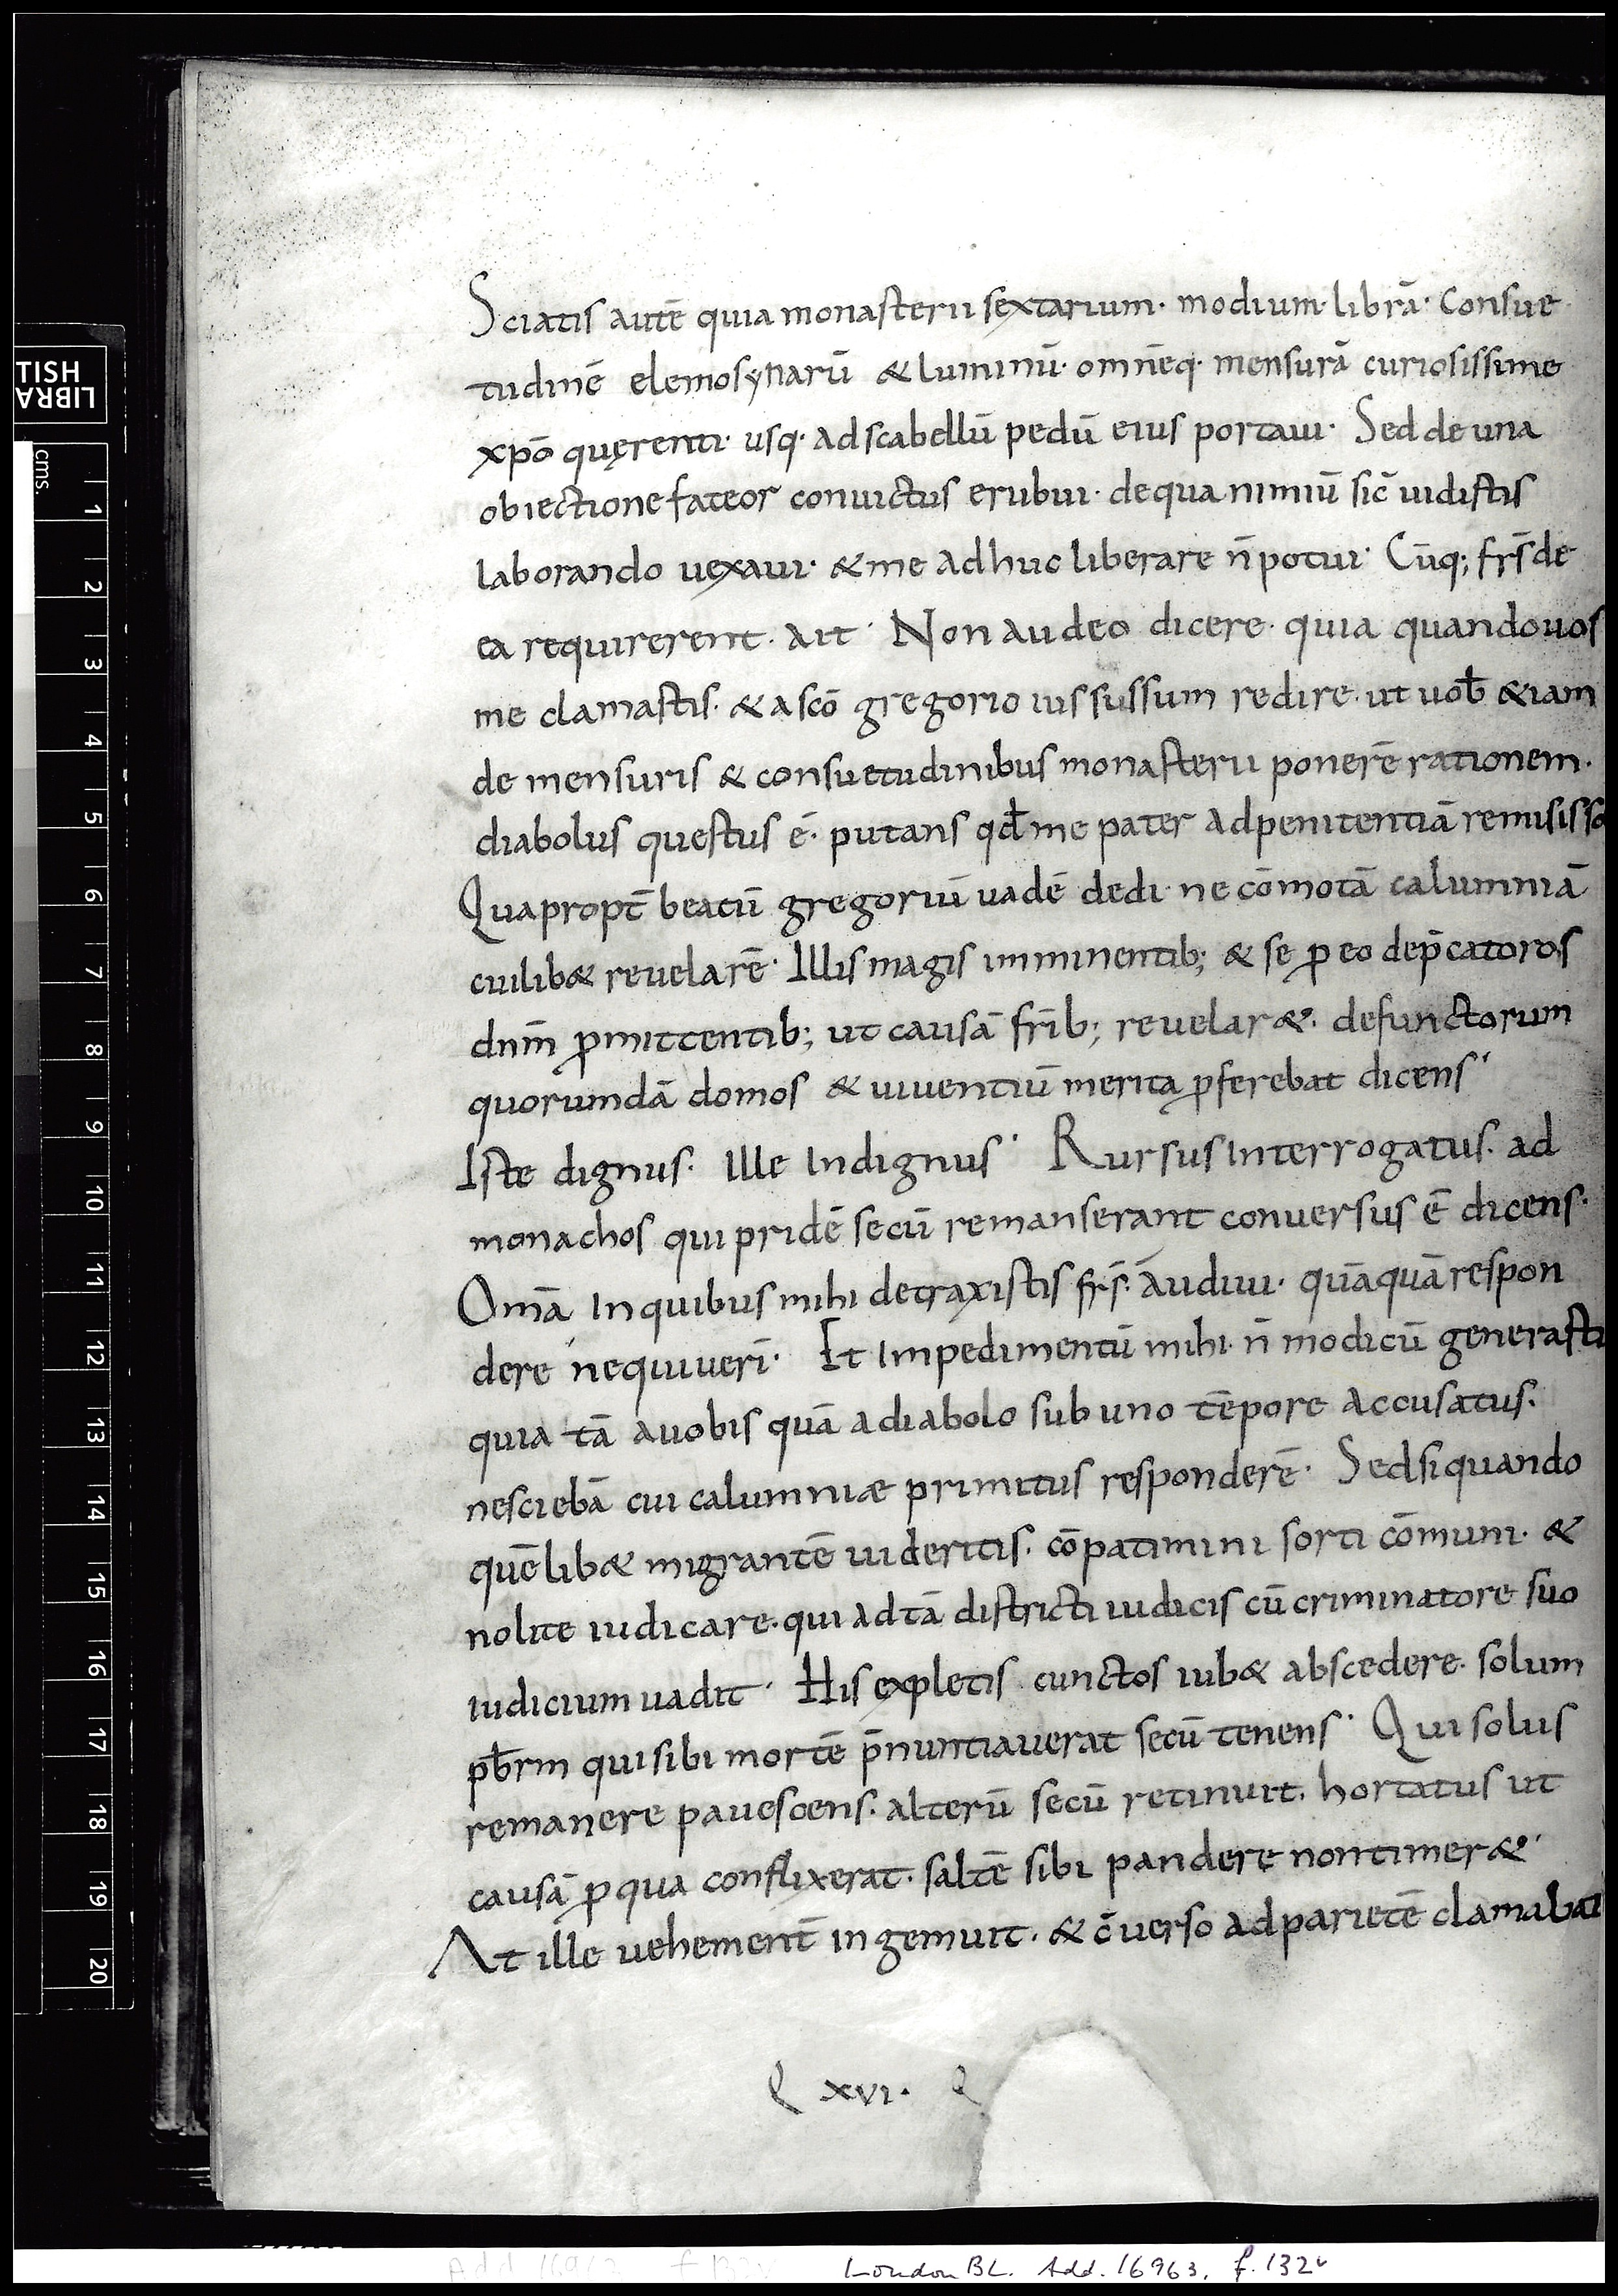 Sciatis autē quia monasterii sextarium· modium· librā· Consue
tudinē elemosynarū & luminū· omnēq· mensurā curiosissime
xpō quęrenti· usq· ad scabellū pedū eius portaui· Sed de una
obiectione fateor conuictus erubui· de qua nimiū sic̄ uidistis
laborando uexaui· & me adhuc liberare n̄ potui· Cūq; fr̄s de
ea requirerent· ait· Non audeo dicere· quia quando uos
me clamastis· & a scō gregorio iussus sum redire· ut uob̄ &iam
de mensuris & consuetudinibus monasterii ponerē rationem·
diabolus questus ē· putans qđ me pater ad penitentiā remisiss
Quapropt̄ beatū gregoriū uadē dedi· ne cōmotā calumniā
cuilib& reuelarē· Illis magis imminentib; & se ꝓ eo dep̄catores
dnm̄ ꝓmittentib; ut causā fr̄ib; reuelar&· defunctorum
quorundā domos & uiuentiū merita ꝓferebat dicens·
Iste dignus· Ille Indignus· Rursus Interrogatus· ad
monachos qui pridē secū remanserant conuersus ē dicens·
Omā In quibus mihi detraxistis fr̄s· audiui· quāquā respon
dere nequiuerī· Et Impedimentū mihi n̄ modicū generasti
quia tā a uobis quā a diabolo sub uno tēpore accusatus·
nesciebā cui calumniæ primitus responderē· Sed si quando
quēlib& migrantē uideritis· cōpatimini sorti cōmuni· &
nolite iudicare· qui ad tā districti iudicis cū criminatore suo
iudicium uadit· His expletis cunctos iub& abscedere· solum
pb̄rm qui sibi mortē p̄nuntiauerat secū tenens· Qui solus
remanere pauescens· alterū secū retinuit· hortatus ut
causā ꝓ qua conflixerat· saltē sibi pandere non timer&·
At ille uehement̄ ingemuit· & c̄uerso ad parietē clamabat
Q XVI· Q
London BL. Add. 16963, f. 132v
TISH
LIBRA
cms.
1
2
3
4
5
6
7
8
9
10
11
12
13
14
15
16
17
18
19
20